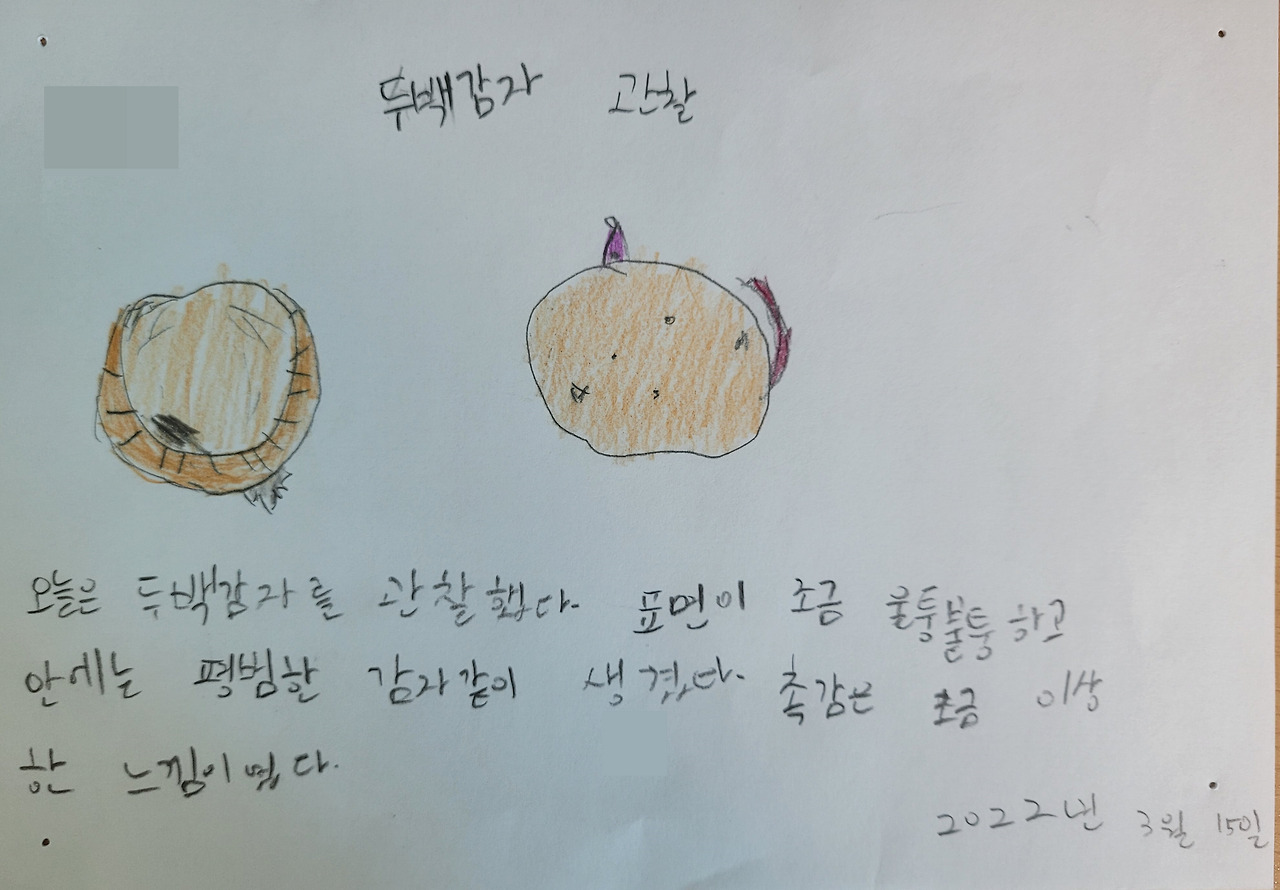 두백감자 관찰
오늘은 두백감자를 관찰했다. 표면이 조금 울퉁불퉁하고
안에는 평범한 감자같이 생겼다. 촉감은 조금 이상
한 느낌이였다.
2022년 3월 15일